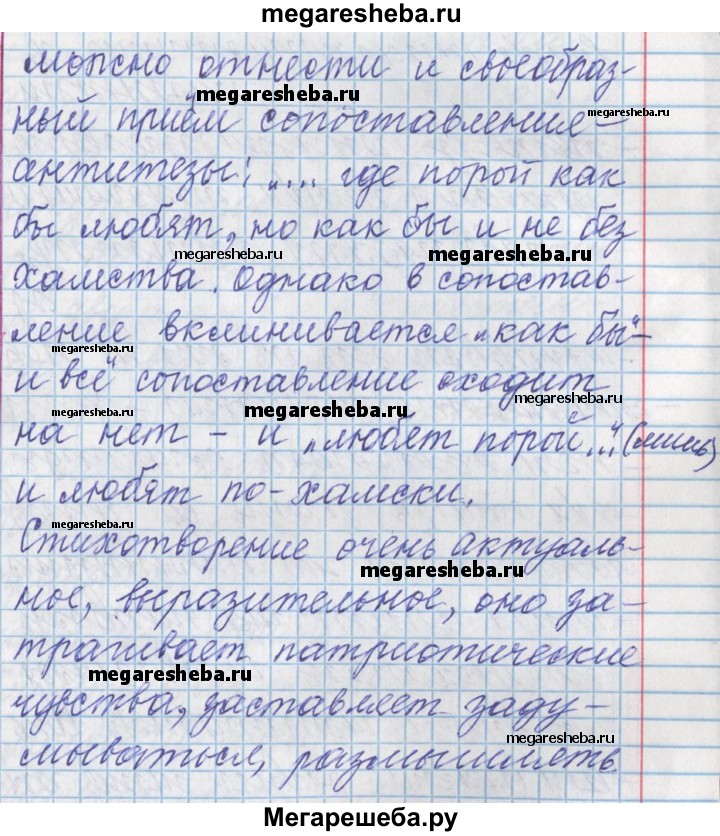 megaresheba.ru
можно отнести и своеобраз-
megaresheba.ru
ный приём сопоставление-
megaresheba.ru
антитезы: "... где порой как
бы любят, но как бы и не без
megaresheba.ru megaresheba.ru
хамства. Однако в сопостав-
ление вклинивается "как бы"-
megaresheba.ru
и всё сопоставление сходит
megaresheba.ru megaresheba.ru megaresheba.ru
на нет - и "любят порой..." (лишь)
и любят по-хамски.
megaresheba.ru
Стихотворение очень актуаль-
megaresheba.ru
ное, выразительное, оно за-
трагивает патриотические
megaresheba.ru
чувства, заставляет заду-
megaresheba.ru
мываться, размышлять.
Мегарешеба.ру